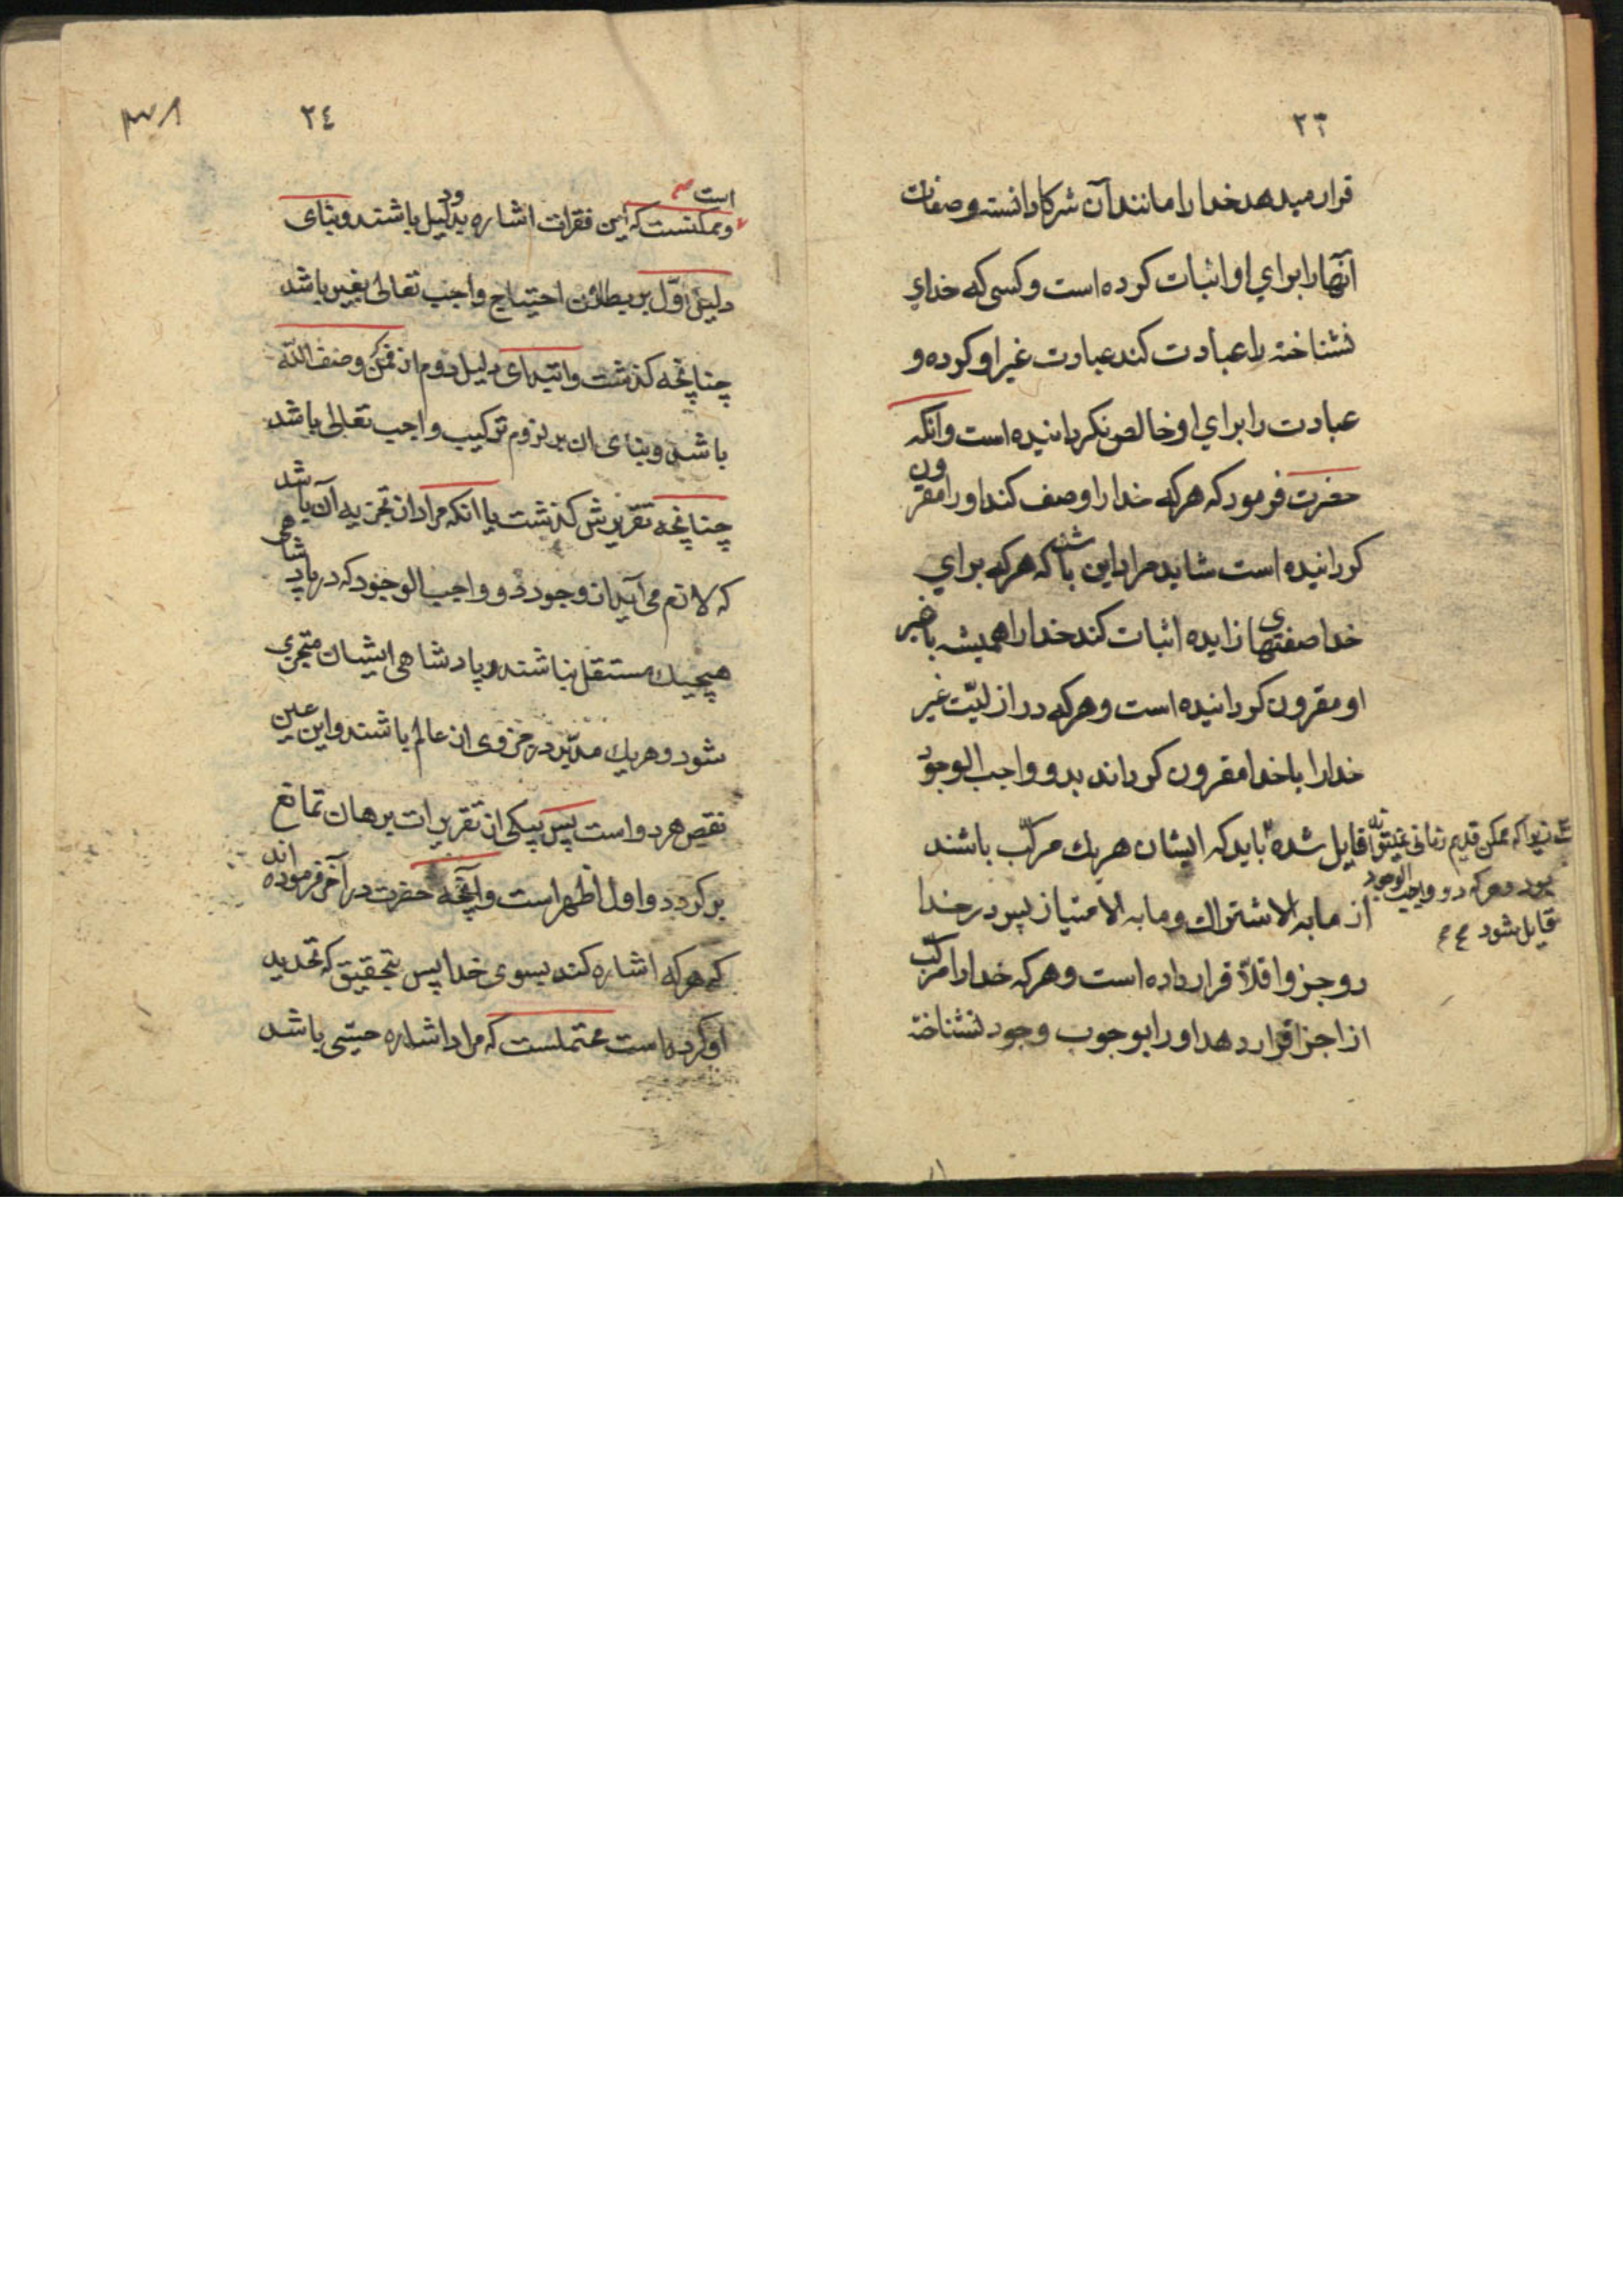 ٢٣
قرار میدهد خدا را مانند آن شرکا دانسته و صفات
آنها را برای او اثبات کرده است و کسی که خدای
نشناخته را عبادت کند عبادت غیر او کرده و
عبادت را برای او خالص نکردانیده است و انکه
حضرت فرمود که هرکه خدا را وصف کند او را مقرون
کردانیده است شاید مراد این باشد که هرکه برای
خدا صفتهای زایده اثبات کند خدا را همیشه با غیر
او مقرون کردانیده است و هرکه در ازلیّت غیر
خدا را با خدا مقرون کرداند بدو واجب الوجود
قایل شده باید که ایشان هریك مرکّب باشند
از ما به الاشتراك و ما به الامتیاز پس در خدا
دو جزو اقلاّ قرار داده است و هرکه خدا را مرکّب
از اجزا قرار دهد او را بوجوب وجود نشناخته
زیرا که ممکن قدیم زمانی نمیتواند
بود و هرکه دو واجب الوجود
قایل شود
٢٤
است صح
و ممکنست که این فقرات اشاره بدو دلیل باشند و بنای
دلیل اوّل بر بطلان احتیاج واجب تعالی بغیر باشد
چنانچه کذشت و ابتدای دلیل دوم از فمن وصف اللّه
باشد و بنای ان بر لزوم ترکیب واجب تعالی باشد
چنانچه تقریرش کذشت یا انکه مراد از تجزیه آن باشد
که لازم می آید از وجود دو واجب الوجود که در پادشاهی
هیچیك مستقل نباشند و پادشاهی ایشان متجزی
شود و هریك مدبّر در جزوی از عالم باشند و این عین
نقص هر دو است پس بیکی از تقریرات برهان تمانع
بر کردد و اول اظهر است و آنچه حضرت در آخر فرموده اند
که هرکه اشاره کند بسوی خدا پس بتحقیق که تحدید
او کرده است محتملست که مراد اشاره حسّی باشد